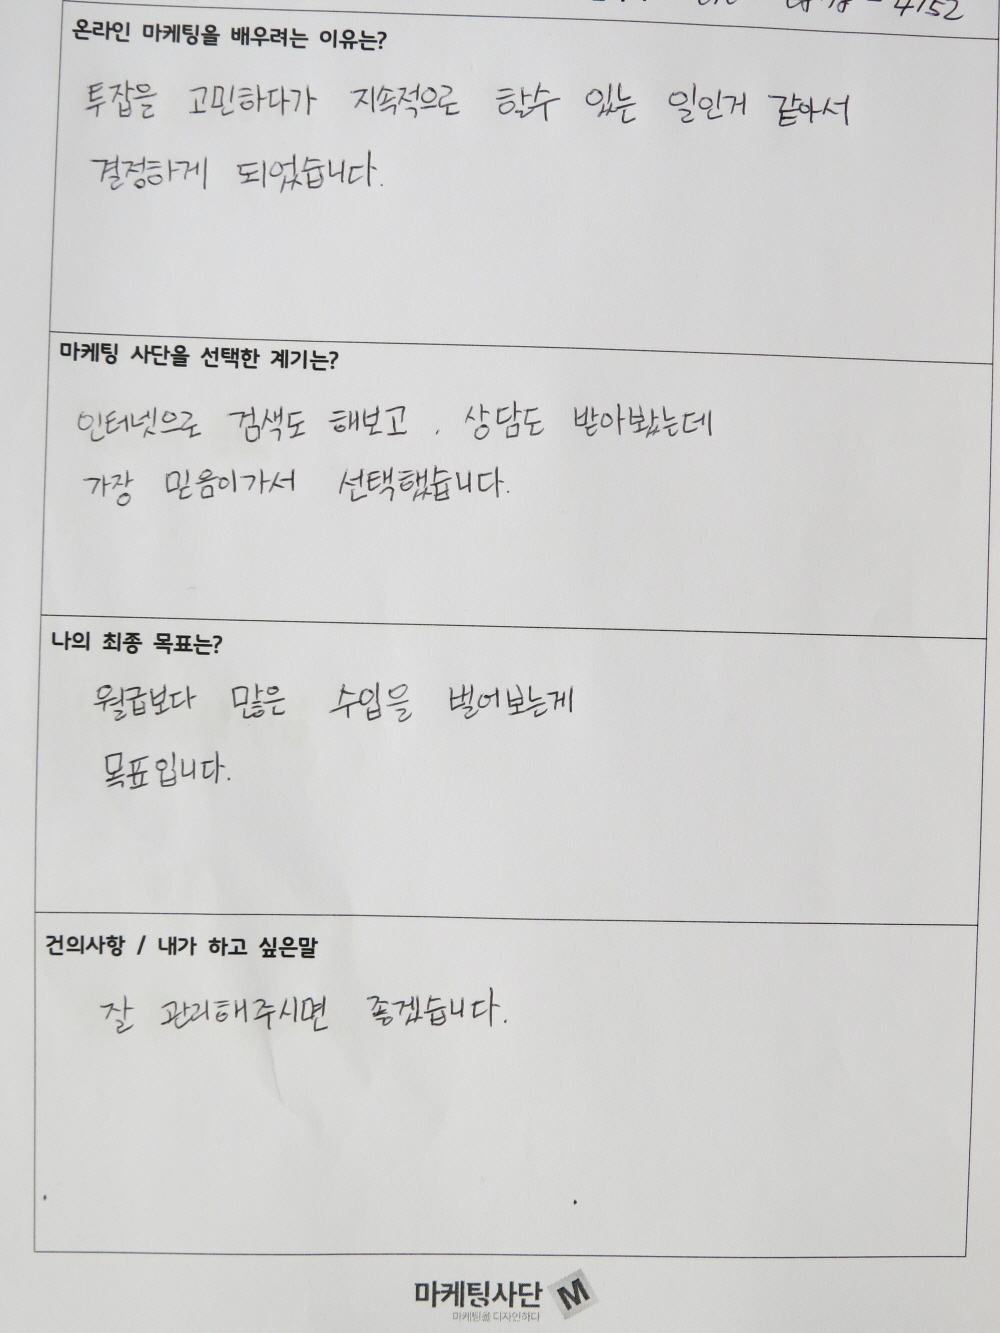 4152
온라인 마케팅을 배우려는 이유는?
투잡을 고민하다가 지속적으로 할수 있는 일인거 같아서
결정하게 되었습니다.
마케팅 사단을 선택한 계기는?
인터넷으로 검색도 해보고 , 상담도 받아봤는데
가장 믿음이가서 선택했습니다.
나의 최종 목표는?
월급보다 많은 수입을 벌어보는게
목표입니다.
건의사항 / 내가 하고 싶은말
잘 관리해주시면 좋겠습니다.
마케팅사단 M
마케팅을 디자인하다